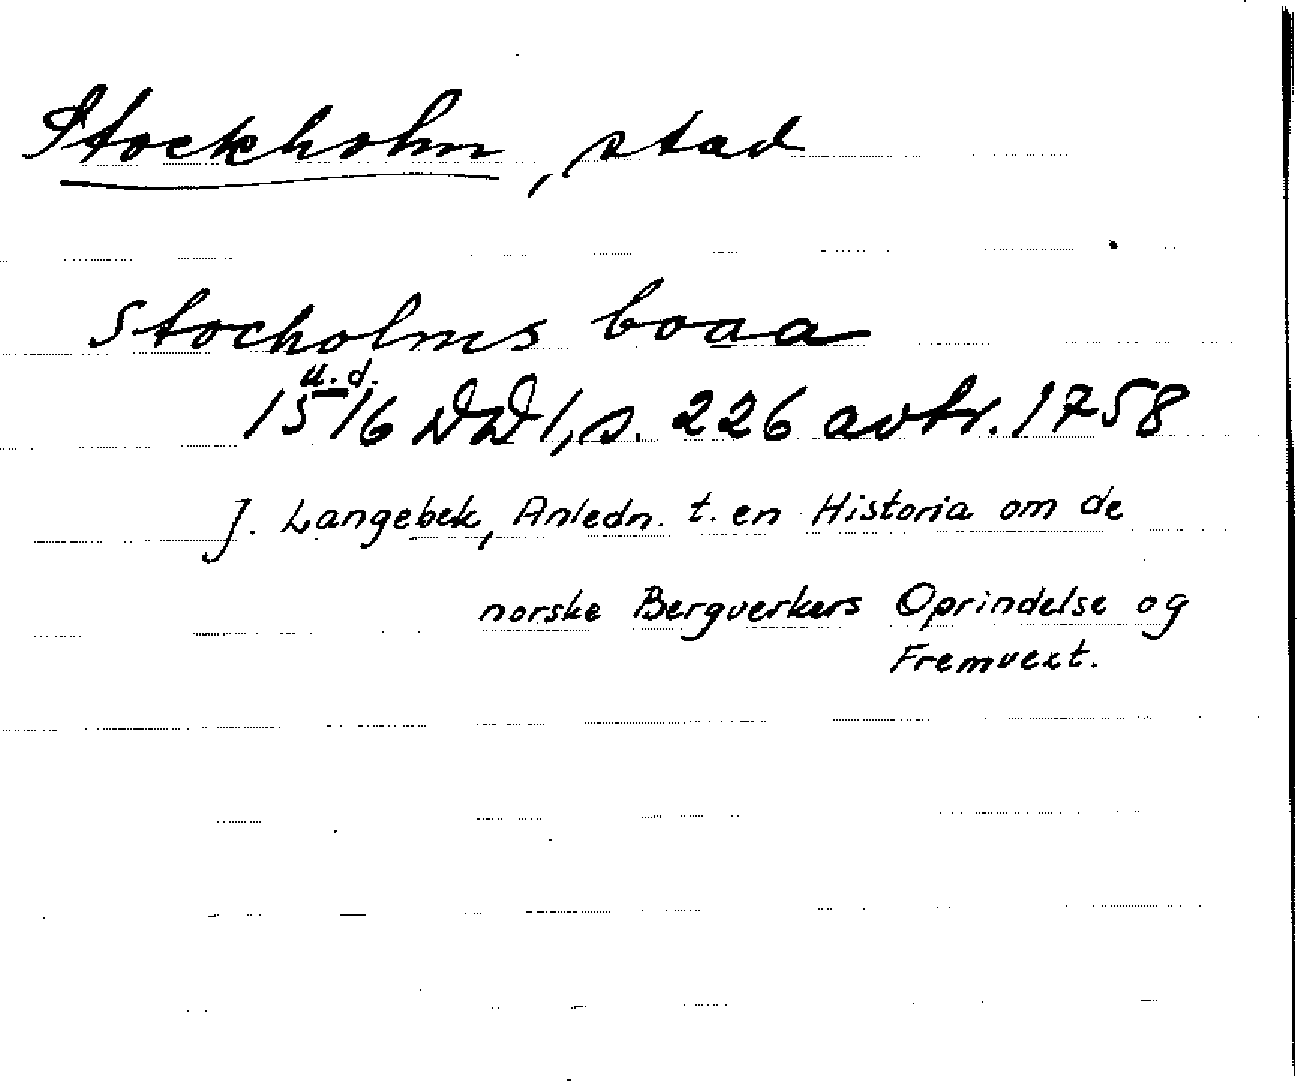 Stockholm, stad
Stocholms boaa
u.d.
1516 DD 1, s. 226 avtr. 1758
J. Langebek, Anledn. t. en Historia om de
norske Bergverkers Oprindelse og
Fremvext.